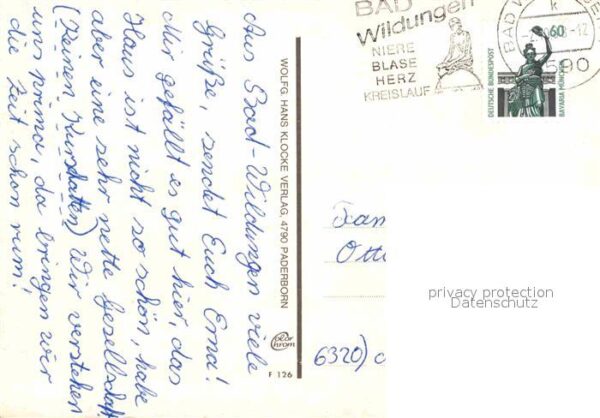 Aus Bad-Wildungen viele
Grüße, sendet Euch Erna!
Mir gefällt es gut hier, das
Haus ist nicht so schön, habe
aber eine sehr nette Gesellschaft
(Keinen Kurschatten) Wir verstehen
uns prima, da bringen wir
die Zeit schon rum!
WOLFG. HANS KLOCKE VERLAG, 4790 PADERBORN
color
chrom
F 126
BAD
Wildungen
NIERE
BLASE
HERZ
KREISLAUF
BAD
-12
590
k
60
DEUTSCHE BUNDESPOST
BAVARIA MÜNCHEN
Fam
Otto
6320)
privacy protection
Datenschutz